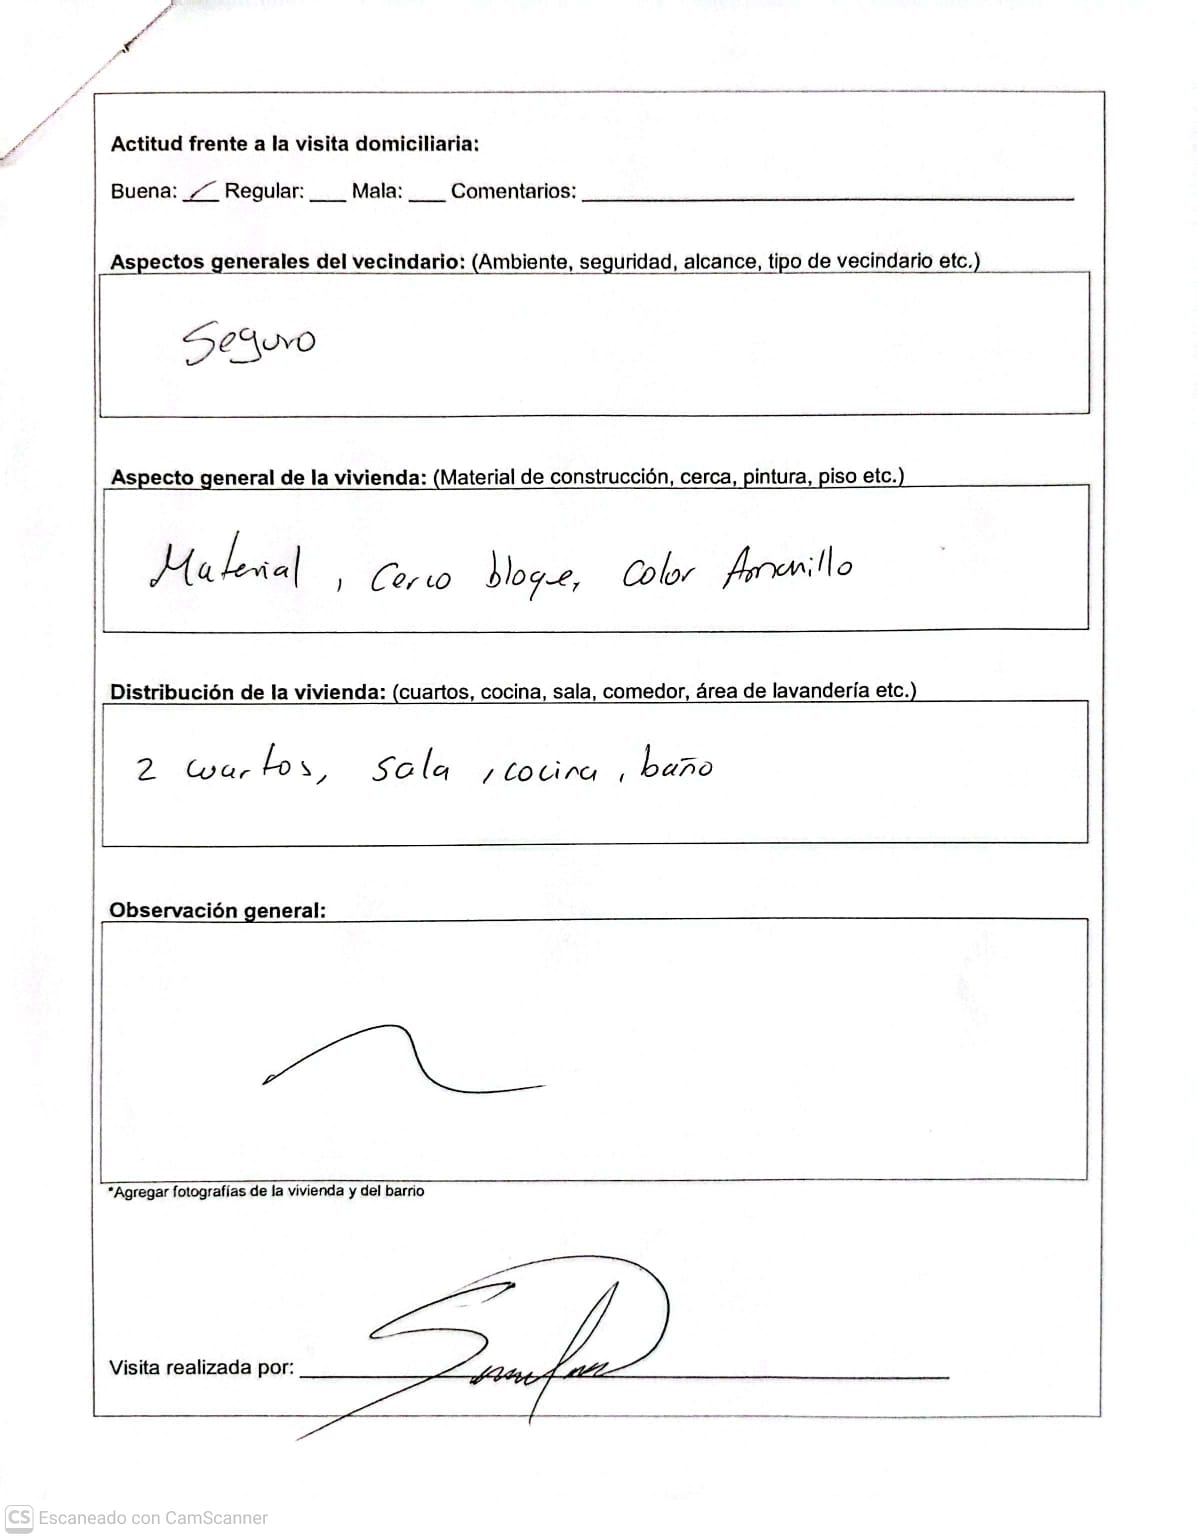 Actitud frente a la visita domiciliaria:
Buena: ✓ Regular: ___ Mala: ___ Comentarios: ___
Aspectos generales del vecindario: (Ambiente, seguridad, alcance, tipo de vecindario etc.)
Seguro
Aspecto general de la vivienda: (Material de construcción, cerca, pintura, piso etc.)
Material, Cerco bloque, Color Amarillo
Distribución de la vivienda: (cuartos, cocina, sala, comedor, área de lavandería etc.)
2 cuartos, sala, cocina, baño
Observación general:
*Agregar fotografías de la vivienda y del barrio
Visita realizada por:
CS Escaneado con CamScanner